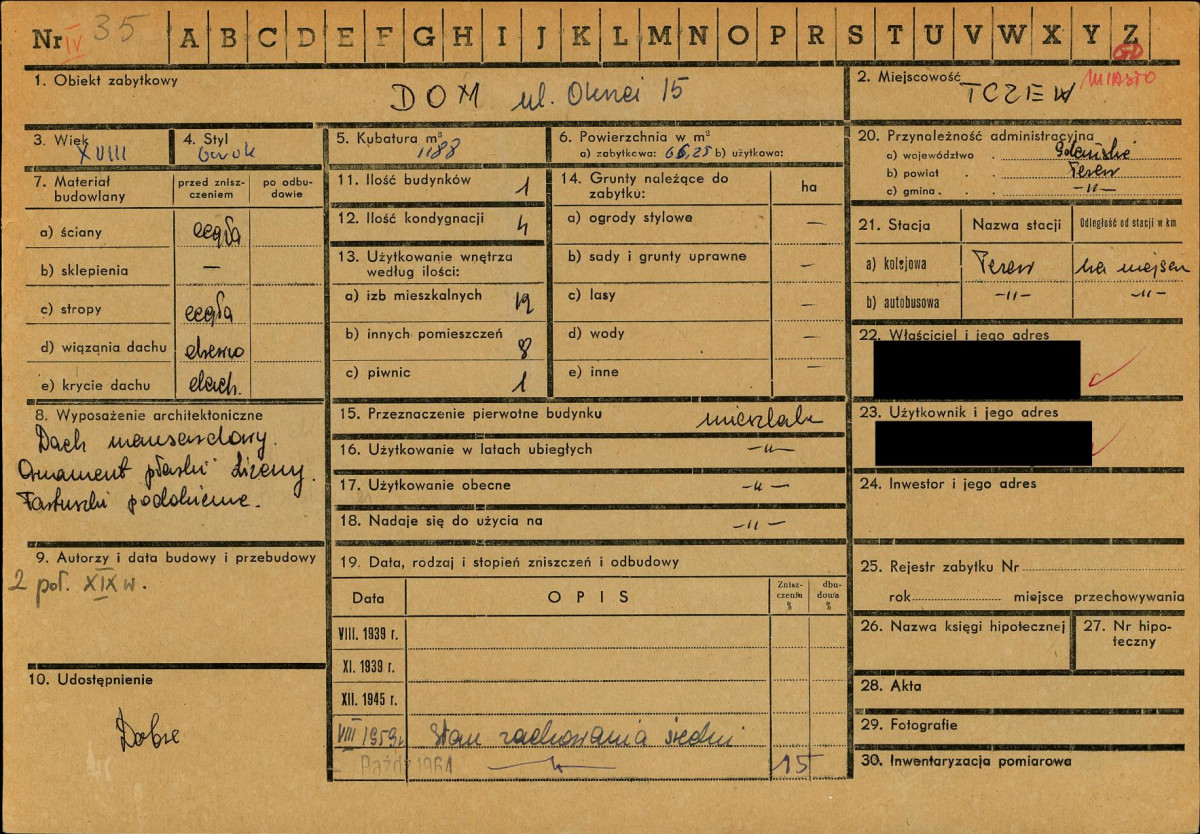 Nr IV 35 A B C D E F G H I J K L M N O P R S T U V W X Y Z
GD
1. Obiekt zabytkowy
DOM ul. Okrzei 15
2. Miejscowość
MIASTO
TCZEW
3. Wiek
XVIII
4. Styl
barok
5. Kubatura m³
1188
6. Powierzchnia w m²
a) zabytkowa: 66,25 b) użytkowa:
7. Materiał budowlany
przed zniszczeniem
po odbudowie
a) ściany cegła
b) sklepienia —
c) stropy cegła
d) wiązania dachu drewno
e) krycie dachu dach.
8. Wyposażenie architektoniczne
Dach mansardowy.
Ornament płaski lizeny.
podokienne.
9. Autorzy i data budowy i przebudowy
2 poł. XIX w.
10. Udostępnienie
Dobre
11. Ilość budynków 1
12. Ilość kondygnacji 4
13. Użytkowanie wnętrza
według ilości:
a) izb mieszkalnych 12
b) innych pomieszczeń 8
c) piwnic 1
14. Grunty należące do
zabytku:
ha
a) ogrody stylowe —
b) sady i grunty uprawne —
c) lasy —
d) wody —
e) inne —
15. Przeznaczenie pierwotne budynku mieszkalne
16. Użytkowanie w latach ubiegłych —„—
17. Użytkowanie obecne —„—
18. Nadaje się do użycia na —„—
19. Data, rodzaj i stopień zniszczeń i odbudowy
Data OPIS Zniszczenia % dbudowa %
VIII. 1939 r.
XI. 1939 r.
XII. 1945 r.
VIII 1959 r. Stan zachowania średni
Paźdz 1964 —„— 15
20. Przynależność administracyjna
a) województwo Gdańskie
b) powiat Tczew
c) gmina —„—
21. Stacja Nazwa stacji Odległość od stacji w km
a) kolejowa Tczew na miejscu
b) autobusowa —„— —„—
22. Właściciel i jego adres
23. Użytkownik i jego adres
24. Inwestor i jego adres
25. Rejestr zabytku Nr
rok miejsce przechowywania
26. Nazwa księgi hipotecznej
27. Nr hipoteczny
28. Akta
29. Fotografie
30. Inwentaryzacja pomiarowa